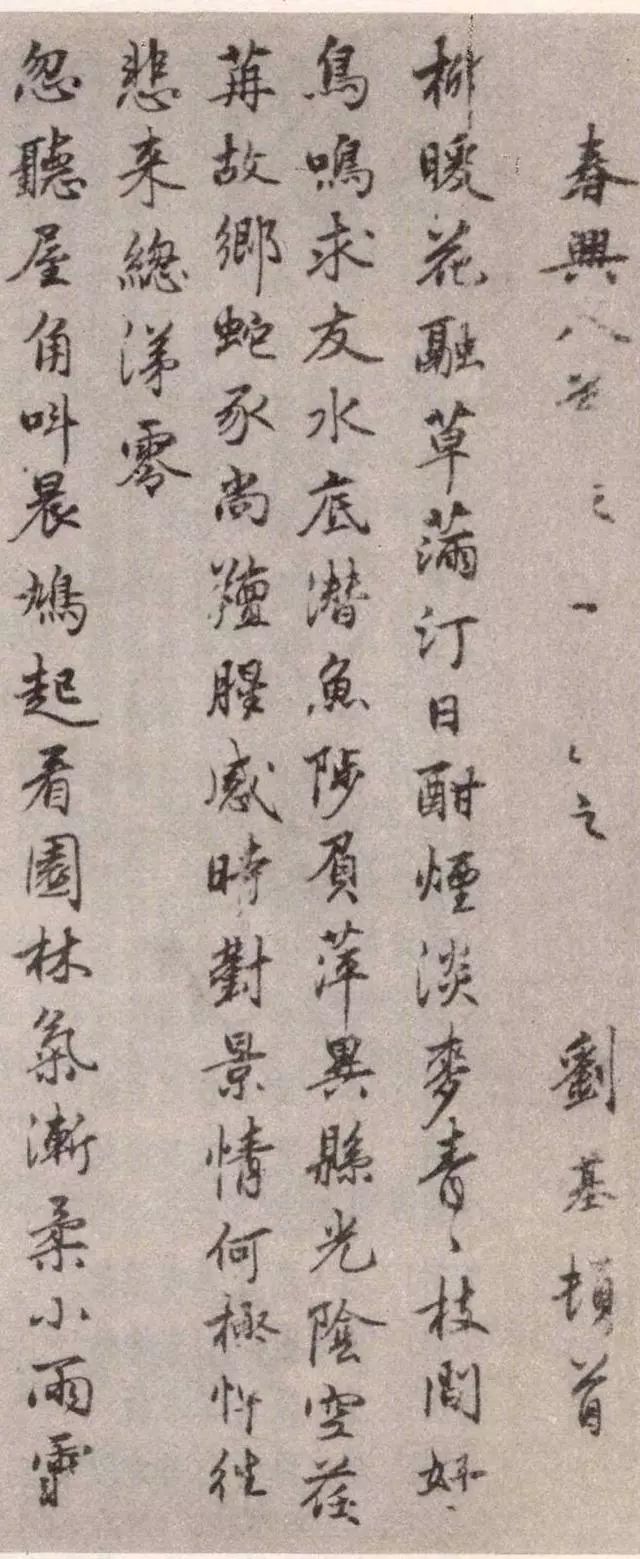 春興八首 一 之 劉基頓首
柳暖花融草滿汀日酣煙淡麥青〻枝間好
鳥鳴求友水底潛魚陟負萍異縣光陰空荏
苒故鄉蛇豕尚羶腥感時對景情何極忻往
悲来總涕零
忽聽屋角叫晨鳩起看園林氣漸柔小雨雪